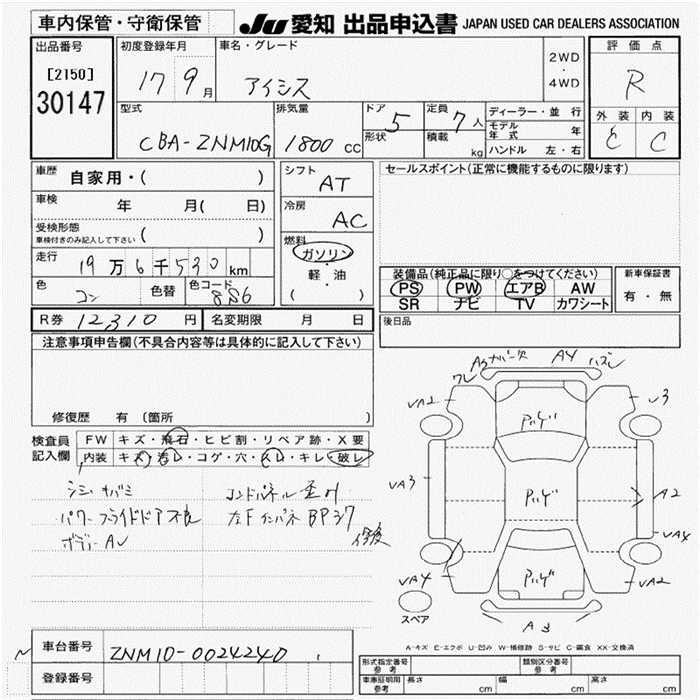 車内保管・守衛保管
JU 愛知 出品申込書 JAPAN USED CAR DEALERS ASSOCIATION
出品番号
[2150]
30147
初度登録年月
17 9 月
車名・グレード
アイシス
2WD
・
4WD
評価点
R
外装 内装
C C
型式
CBA-ZNM10G
排気量
1800 CC
ドア
5
形状
定員
7 人
積載
kg
ディーラー・並行
モデル年式 年
ハンドル 左・右
車歴
自家用・( )
車検
年 月( 日)
受検形態
車検付きのみ記入して下さい ( )
走行
19 万 6 千 530 km
色
コン
色替
色コード
8S6
シフト
AT
冷房
AC
燃料
ガソリン
・
軽・油
( )
セールスポイント(正常に機能するものに限ります)
装備品(純正品に限り○をつけてください)
PS PW エアB AW
SR ナビ TV カワシート
新車保証書
有・無
R券 12,310 円
名変期限 月 日
後日品
注意事項申告欄(不具合内容等は具体的に記入して下さい)
修復歴 有 (箇所 )
検査員
記入欄
FW キズ・飛石・ヒビ割・リペア跡・X要
内装 キズ・汚レ・コゲ・穴・スレ・キレ・破レ
シミ・ナバミ
パワースライドドア不良
ボデー AU
コンドパネル歪み
左Fインパネ BPヨり
修復
A3 ナバース
ワレ
A4 ハズレ
UA2
UA3
UA4
U3
A2
UA4
UA2
A3
Pハゲ
Pハゲ
Pハゲ
スペア
A-キズ E-エクボ U-凹み W-補修跡 S-サビ C-腐食 XX-交換済
車台番号
ZNM10-0024240
登録番号
形式指定番号
参考
類別区分番号
参考
車庫証明用
参考
長さ cm
幅 cm
高さ cm